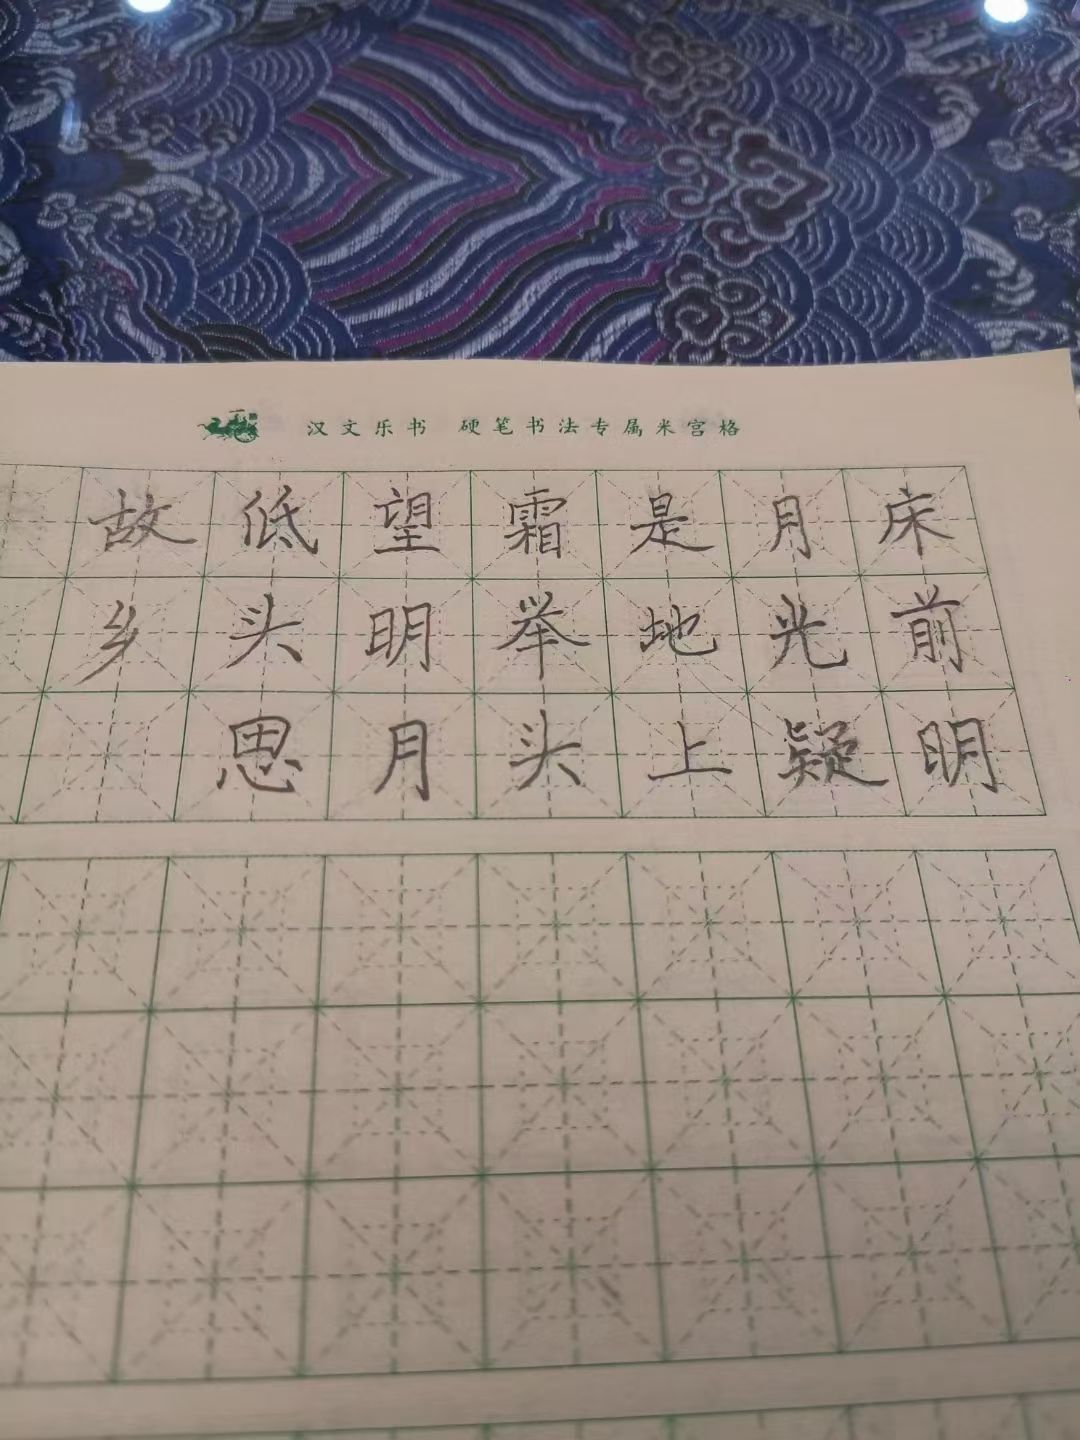 汉文乐书 硬笔书法专属米宫格
床前明
月光疑
是地上
霜举头
望明月
低头思
故乡